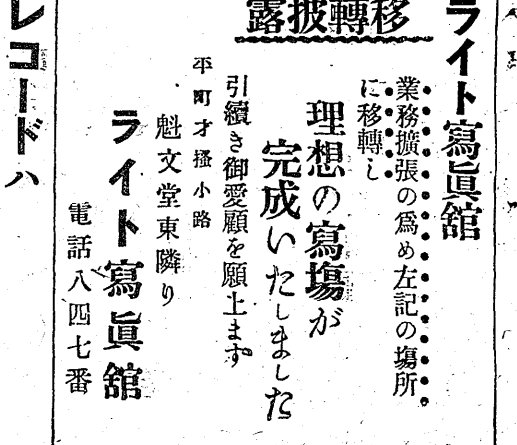 ライト寫眞舘
移轉披露
業務擴張の爲め左記の塲所
に移轉し
理想の寫塲が
完成いたしました
引續き御愛顧を願上ます
平町才搔小路
魁文堂東隣り
ライト寫眞舘
電話八四七番
レコードハ